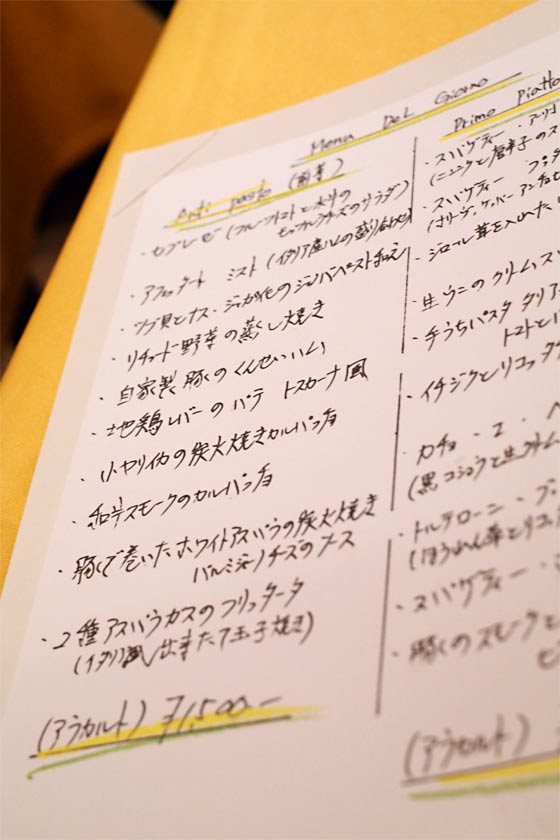 Menu Del Giorno
Anti pasto (前菜)
・カプレーゼ (フルーツトマトと水牛の
モッツァレラチーズのサラダ)
・アフェッタート ミスト (イタリア産ハムの盛り合わせ)
・ツブ貝とナス・ジャガ芋のジェノバペースト和え
・リチュード野菜の蒸し焼き
・自家製豚のくんせいハム
・地鶏レバーのパテ トスカーナ風
・小ヤリイカの炭火焼きカルパッチョ
・和牛スモークのカルパッチョ
・豚で巻いたホワイトアスパラの炭火焼き
パルミジャーノチーズのソース
・2種アスパラガスのフリッタータ
(イタリア風出来たて玉子焼き)
(アラカルト) ¥1,500-
Primo Piatto
・スパゲティー・アーリオ
(ニンニクと唐辛子のス
・スパゲティー プッタ
(オリーブ、ケッパー、アンチョビ
・ジロール茸を入れた
・生ウニのクリームス
・手うちパスタ タリア
トマトと
・イチジクとリコッタ
・カチョ・エ・
(黒コショウと生クリーム
・トルテローニ・ブ
(ほうれん草とリコ
・スパゲティー・
・豚のスモークと
(アラカルト)